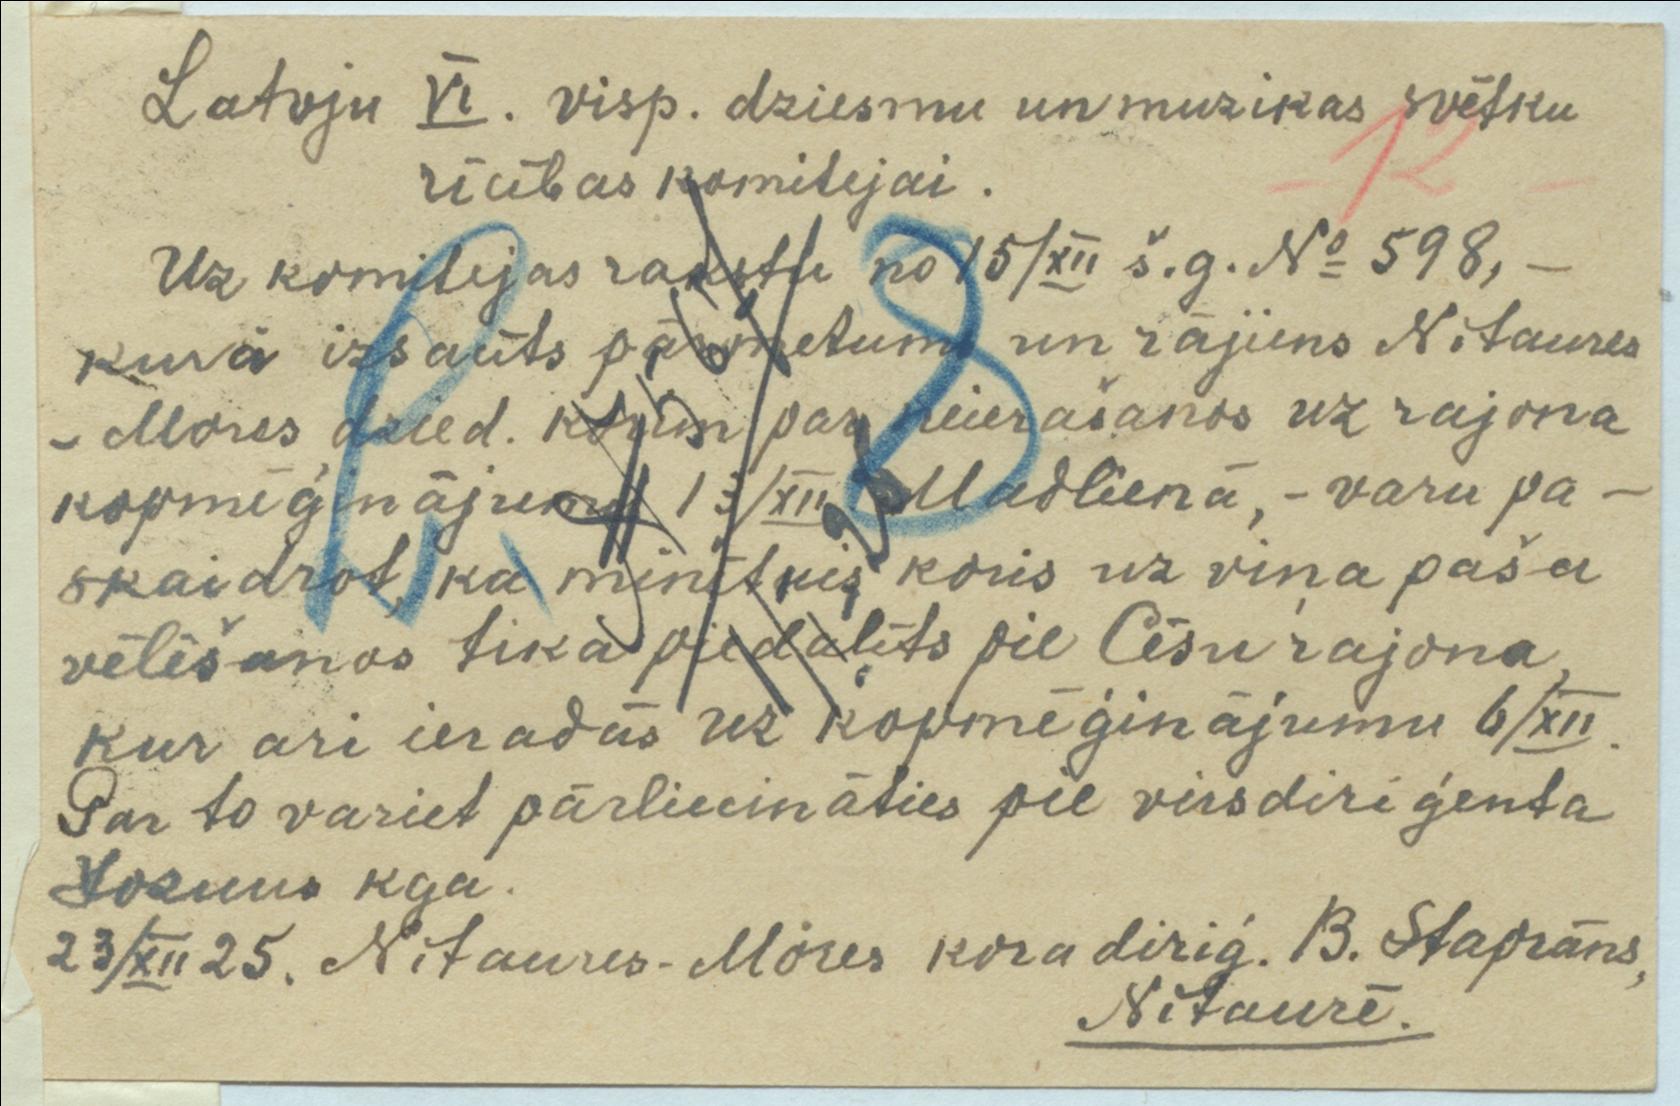 Latvju VI. visp. dziesmu un muzikas svētku
rīcības komitejai.
12
Uz komitejas rakstu no 15/XII š.g. № 598, –
kurā izsaūts pārmetums un rājiens Nitaures
– Mores dzied. korim par neierašanos uz rajona
kopmēģinājumu 13/XII Madlienā, – varu pa –
skaidrot, ka minētais koris uz viņa paša
vēlēšanos tika piedalīts pie Cēsu rajona,
kur arī ieradās uz kopmēģinājumu 6/XII.
Par to variet pārliecināties pie virsdiriģenta
Jozuus kga.
23/XII 25. Nitaures-Mores kora diriģ. B. Staprāns,
Nītaurē.